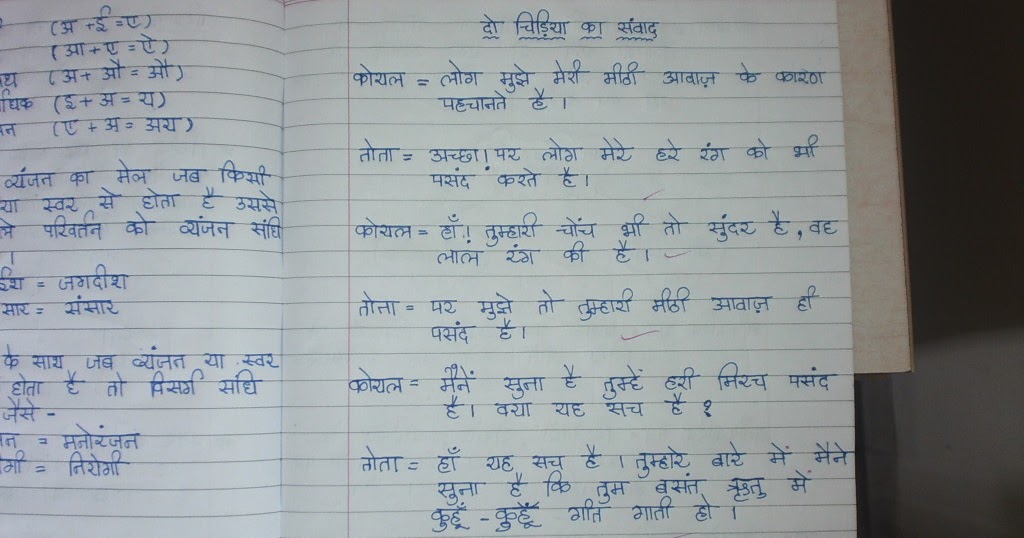 (अ + ई = ए)
(आ + ए = ऐ)
(अ + औ = औ)
(इ + अ = य)
(ए + अ = अय)
व्यंजन का मेल जब किसी
या स्वर से होता है उससे
परिवर्तन को व्यंजन संधि
।
= जगदीश
सार = संसार
के साथ जब व्यंजन या स्वर
होता है तो विसर्ग संधि
जैसे -
= मनोरंजन
= निरोगी
दो चिड़िया का संवाद
कोयल = लोग मुझे मेरी मीठी आवाज़ के कारण
पहचानते है ।
तोता = अच्छा। पर लोग मेरे हरे रंग को भी
पसंद करते है।
कोयल = हाँ! तुम्हारी चोंच भी तो सुंदर है, वह
लाल रंग की है।
तोता = पर मुझे तो तुम्हारी मीठी आवाज़ ही
पसंद है।
कोयल = मैनें सुना है तुम्हें हरी मिरच पसंद
है। क्या यह सच है ?
तोता = हाँ यह सच है । तुम्हारे बारे में मैने
सुना है कि तुम बसंत ऋतु में
कुहूँ - कुहूँ गीत गाती हो ।